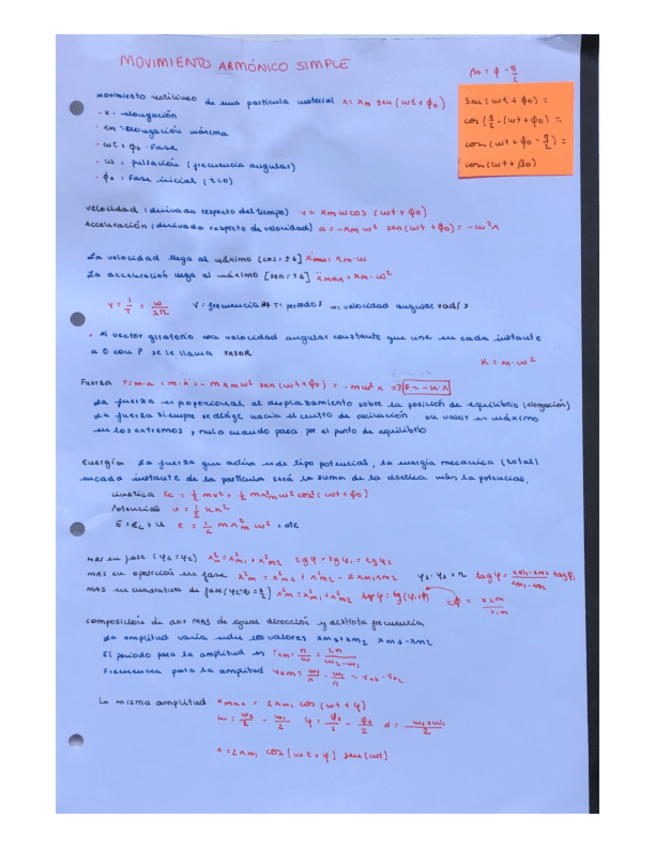 MOVIMIENTO ARMÓNICO SIMPLE
β0 = φ - π/2
Movimiento rectilíneo de una partícula material x = xm sen (wt + φ0)
- x: elongación
- xm: elongación máxima
- wt + φ0: Fase
- w: pulsación (frecuencia angular)
- φ0: Fase inicial (t=0)
sen (wt + φ0) =
cos (π/2 - (wt + φ0) =
cos (wt + φ0 - π/2) =
cos (wt + β0)
Velocidad (derivada respecto del tiempo) v = xm w cos (wt + φ0)
Aceleración (derivada respecto de velocidad) a = -xm w² sen (wt + φ0) = -w²x
La velocidad llega al máximo [cos = ±1] ẋmax = xm · w
La aceleración llega al máximo [sen = ±1] ẍmax = xm · w²
ν = 1/T = w/2π ν = frecuencia Hz T = periodo s w: velocidad angular rad/s
• Al vector giratorio con velocidad angular constante que une en cada instante
a O con P se le llama FASOR
K = m · w²
Fuerza F = m·a = m·ẍ = -m xm w² sen (wt + φ0) = -mw² x => F = -K·x
La fuerza es proporcional al desplazamiento sobre la posición de equilibrio (elongación)
La fuerza siempre se dirige hacia el centro de oscilación. Su valor es máximo
en los extremos y nula cuando pasa por el punto de equilibrio
Energía La fuerza que actúa es de tipo potencial, la energía mecánica (total)
en cada instante de la partícula será la suma de la cinética más la potencial.
Cinética Ec = ½ mv² = ½ m xm² w² cos² (wt + φ0)
Potencial u = ½ Kx²
E = Ec + u E = ½ m xm² w² = cte
MAS en fase (φ1 = φ2) xm² = xm1² + xm2² tg φ = tg φ1 = tg φ2
MAS en oposición en fase xm² = xm1² + xm2² - 2 xm1 xm2 φ2 - φ1 = π
MAS en cuadratura de fase xm² = xm1² + xm2²
Composición de dos MAS de igual dirección y distinta frecuencia
La amplitud varía entre los valores xm1 + xm2 xm1 - xm2
El periodo para la amplitud es
Frecuencia para la amplitud
La misma amplitud xmax = 2xm1 cos (wt + φ)
x = 2xm1 cos (wt + φ) sen (wt)